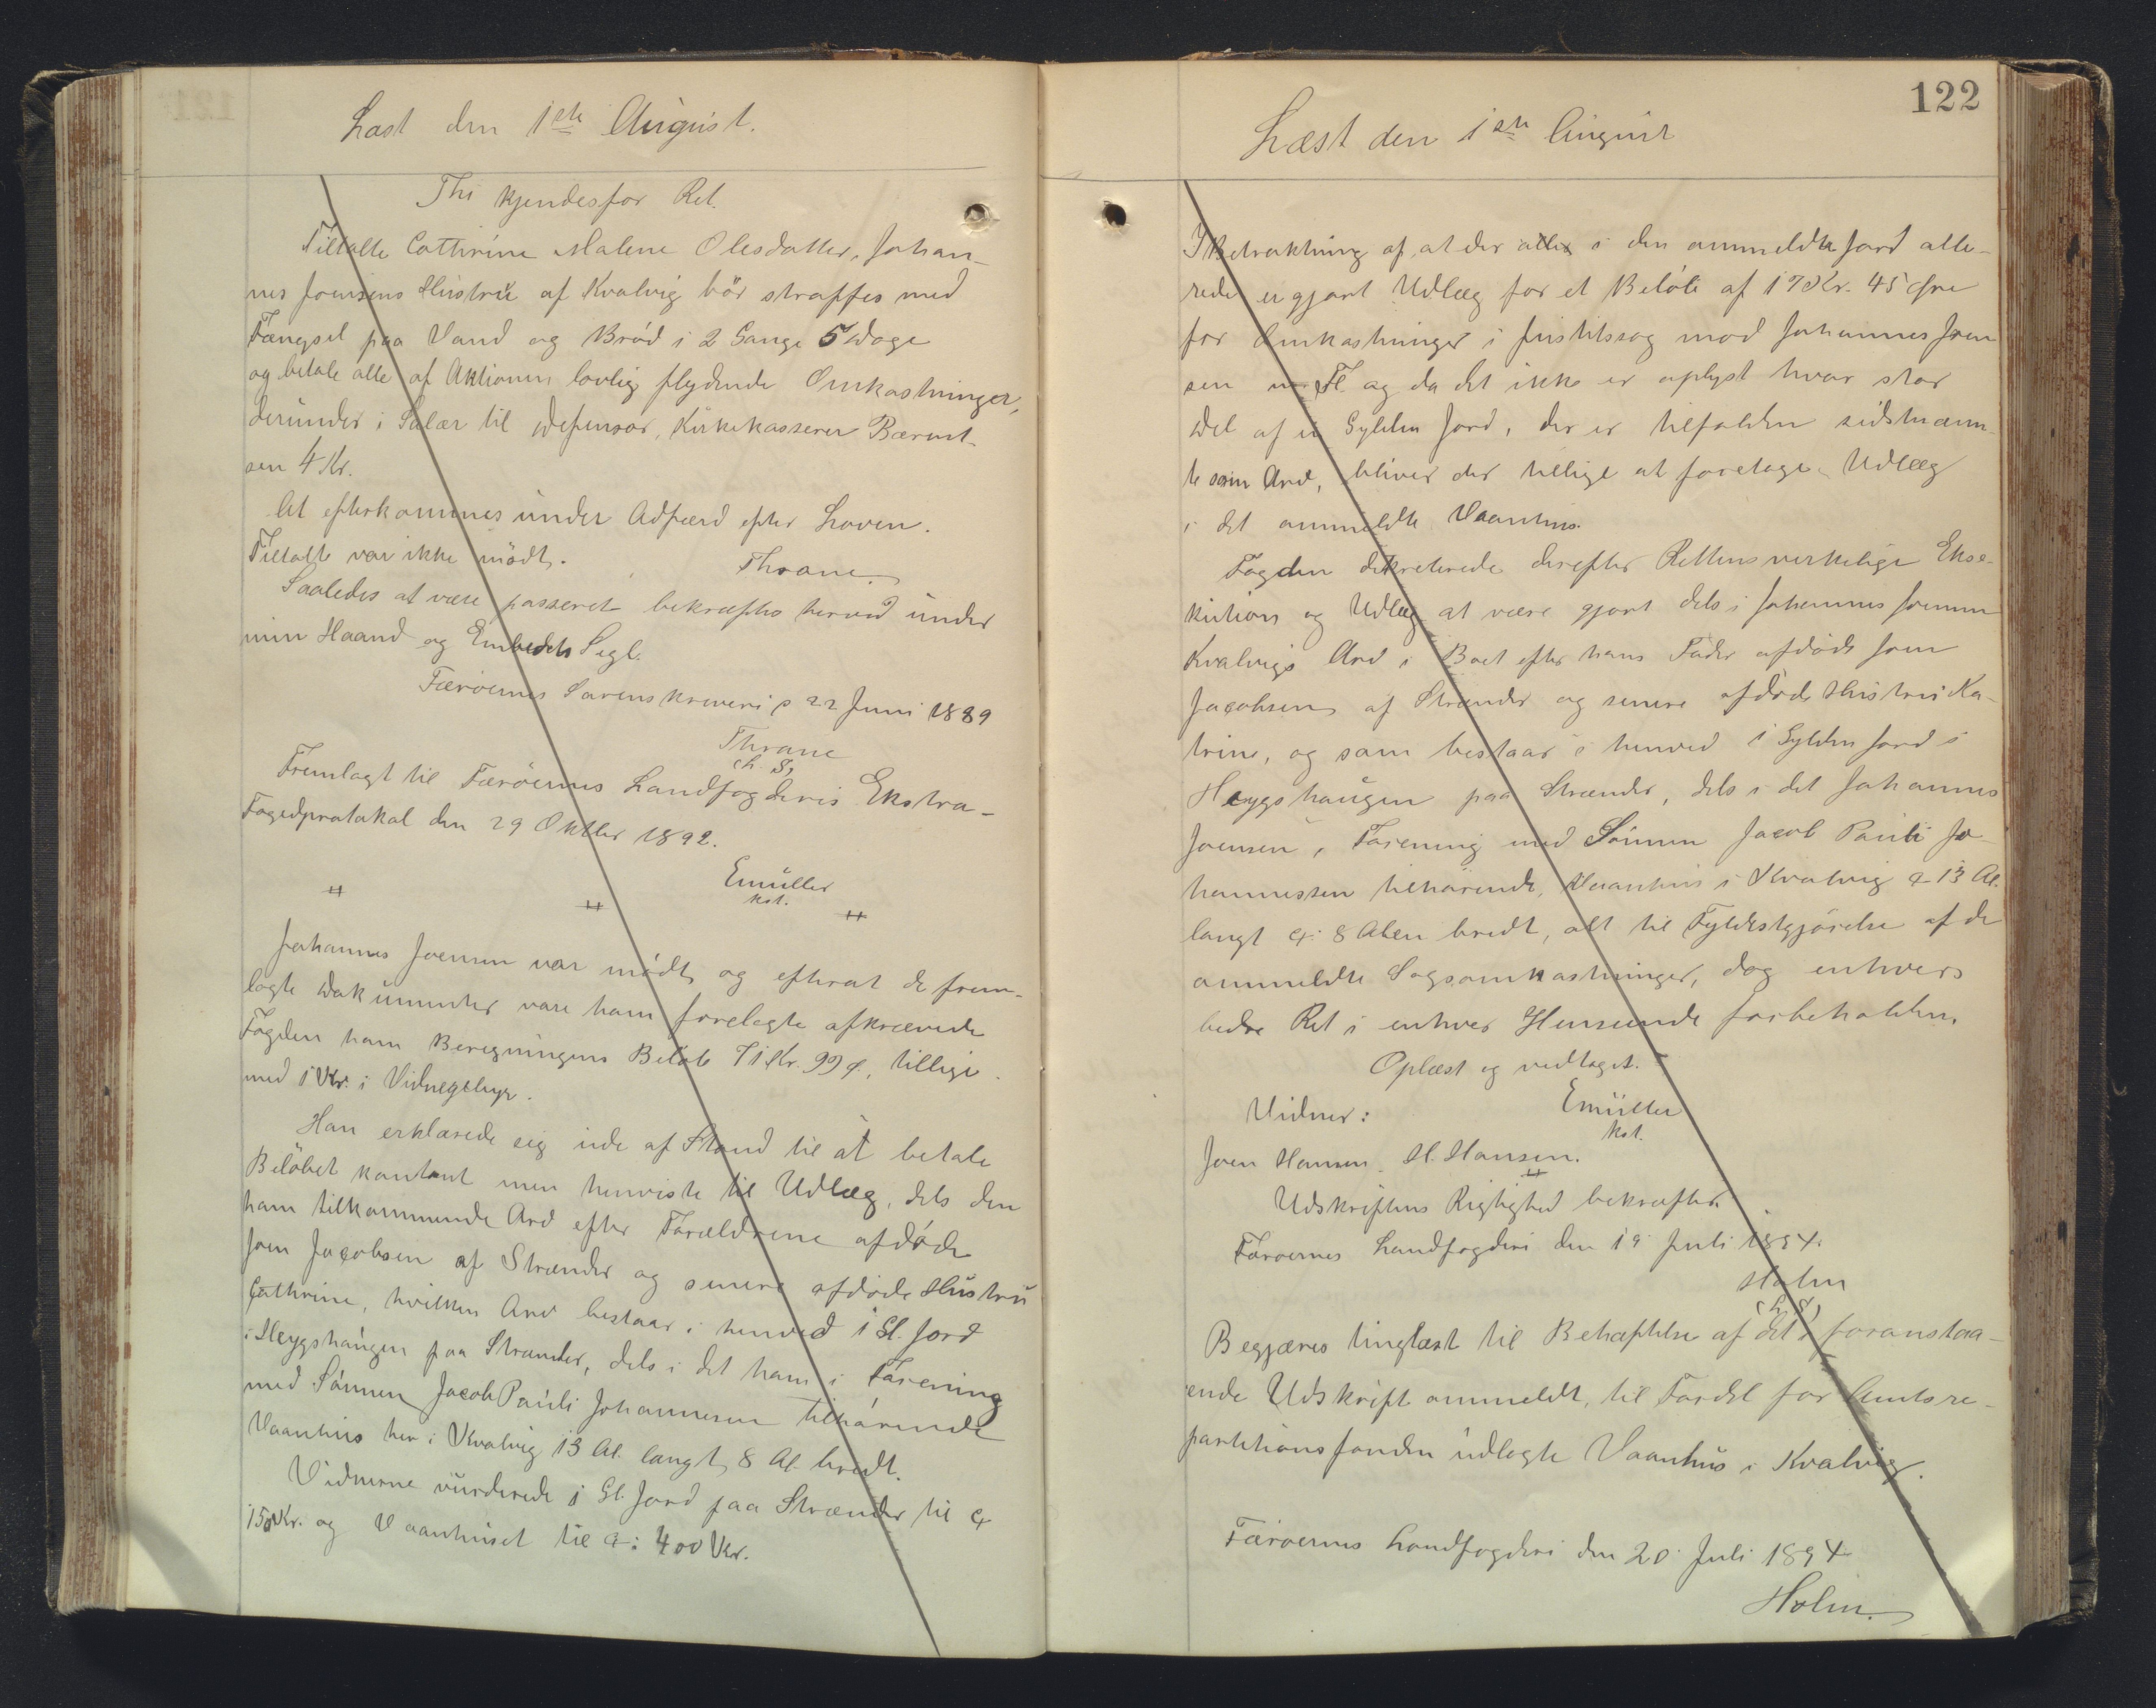 Læst den 1ste August.
Thi kjendes for Ret.
Tiltalte Cathrine Malene Olesdatter, Johan-
nes Joensens Hustru af Kvalvig bör straffes med
Fængsel paa Vand og Bröd i 2 Gange 5 Dage
og betale alle af Aktionen lovlig flydende Omkostninger,
derunder i Salær til Defensor, Kirkekasserer Bærent-
sen 4 Kr.
At efterkommes under Adfærd efter Loven.
Tiltalte var ikke mödt.
Thrane.
Saaledes at være passeret bekræftes herved under
min Haand og Embedets Segl.
Færöernes Sorenskriveri p 22 Juni 1889
Thrane
(L. S.)
Fremlagt til Færöernes Landfogderis Ekstra-
Fogedprotokol den 29 Oktbr 1892.
Emüller
kst.
Johannes Joensen var mödt, og efterat de frem-
lagte Dokumenter vare ham forelagte afkrævede
Fogden ham Beregningens Belöb 71 Kr. 99 Ø, tillige
med 1 Kr. i Vidnegebyr.
Han erklærede sig ude af Stand til at betale
Belöbet kontant men henviste til Udlæg, dels den
ham tilkommende Arv efter Forældrene afdöde
Joen Jacobsen af Strænder og senere afdöde Hustru
Cathrine, hvilken Arv bestaar i henved 1 Gl. Jord
i Heygshaugen paa Strænder, dels i det ham i Forening
med Sönnen Jacob Pauli Johannesen tilhörende
Vaanhus her i Kvalvig 13 Al. langt, 8 Al. bredt.
Vidnerne vurderede 1 Gl. Jord paa Strænder til
150 Kr. og Vaanhuset til 400 Kr.
122
Læst den 1ste August
I Betraktning af, at der alle i den anmeldte Jord alle-
rede er gjort Udlæg for et Belöb af 170 Kr. 45 Øre
for Omkostninger i Justitssag mod Johannes Joen
sen m. Fl. og da det ikke er oplyst hvor stor
Del af en Gylden Jord, der er tilfalden sidstnævn-
te som Arv, bliver der tillige at foretage Udlæg
i det anmeldte Vaanhus.
Fogden dekreterede derefter Rettens virkelige Ekse-
kution og Udlæg at være gjort dels i Johannes Joensen
Kvalvigs Arv i Boet efter hans Fader afdöde Joen
Jacobsen af Strænder og senere afdöde Hustru Ka-
trine, og som bestaar i henved 1 Gylden Jord i
Heygshaugen paa Strænder, dels i det Johannes
Joensen, i Forening med Sönnen Jacob Pauli Jo-
hannessen tilhörende, Vaanhus i Kvalvig 13 Al.
langt 8 Alen bredt, alt til Fyldestgjörelse af de
anmeldte Sagsomkostninger, dog enhvers
bedre Ret i enhver Henseende forbeholden.
Oplæst og vedtaget.
Emüller
kst.
Vidner:
Joen Hansen. H. Hansen.
Udskriftens Rigtighed bekræftes.
Færoernes Landfogderi den 19 Juli 1894.
Holm
(L. S.)
Begjæres tinglæst til Behæftelse af det i foranstaa-
ende Udskrift ommeldt, til Fordel for Amtsre-
partitionsfonden udlagte Vaanhus i Kvalvig.
Færoernes Landfogderi den 20 Juli 1894
Holm.